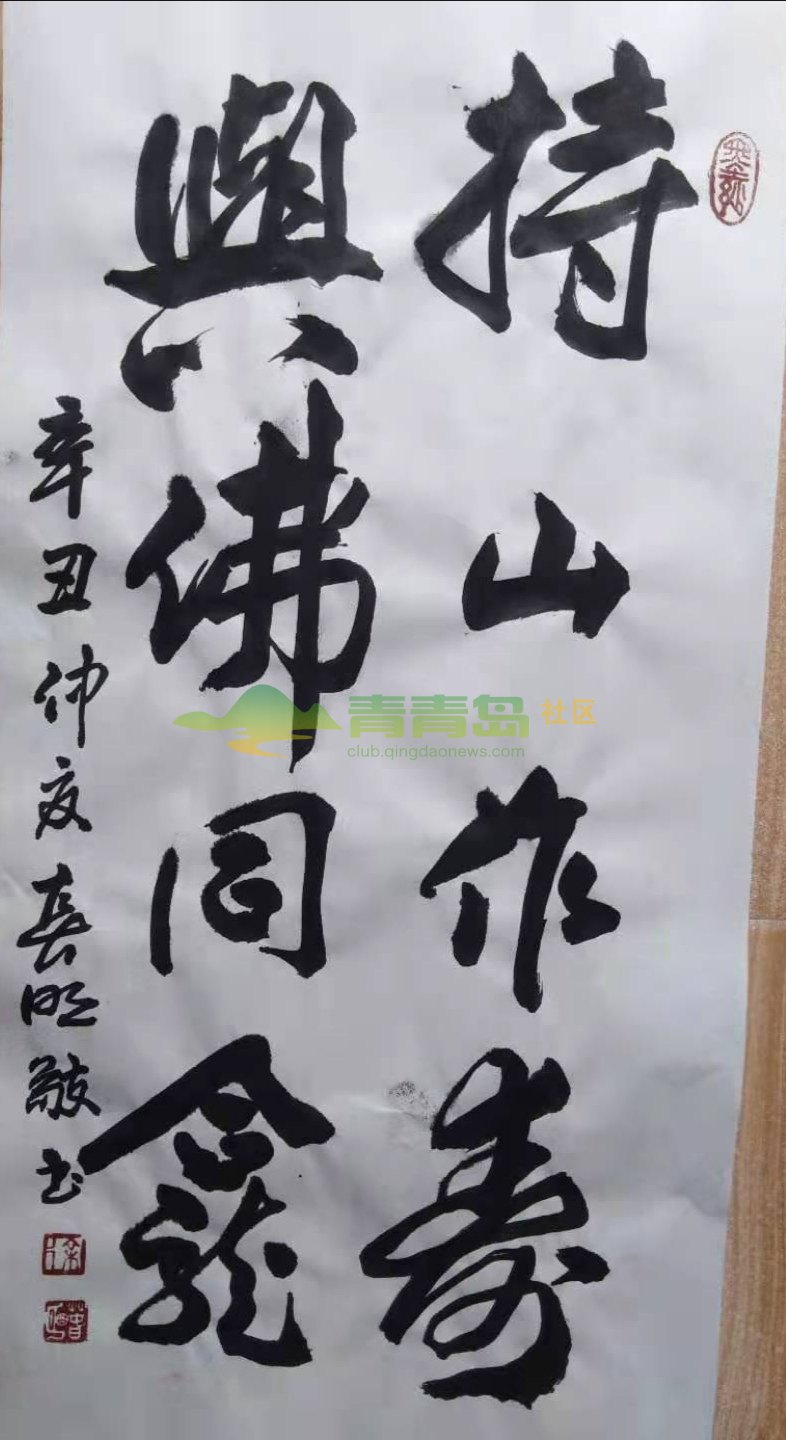 持山作寿
與佛同龕
辛丑仲夏喜明敬书
青青岛社区
club.qingdaonews.com